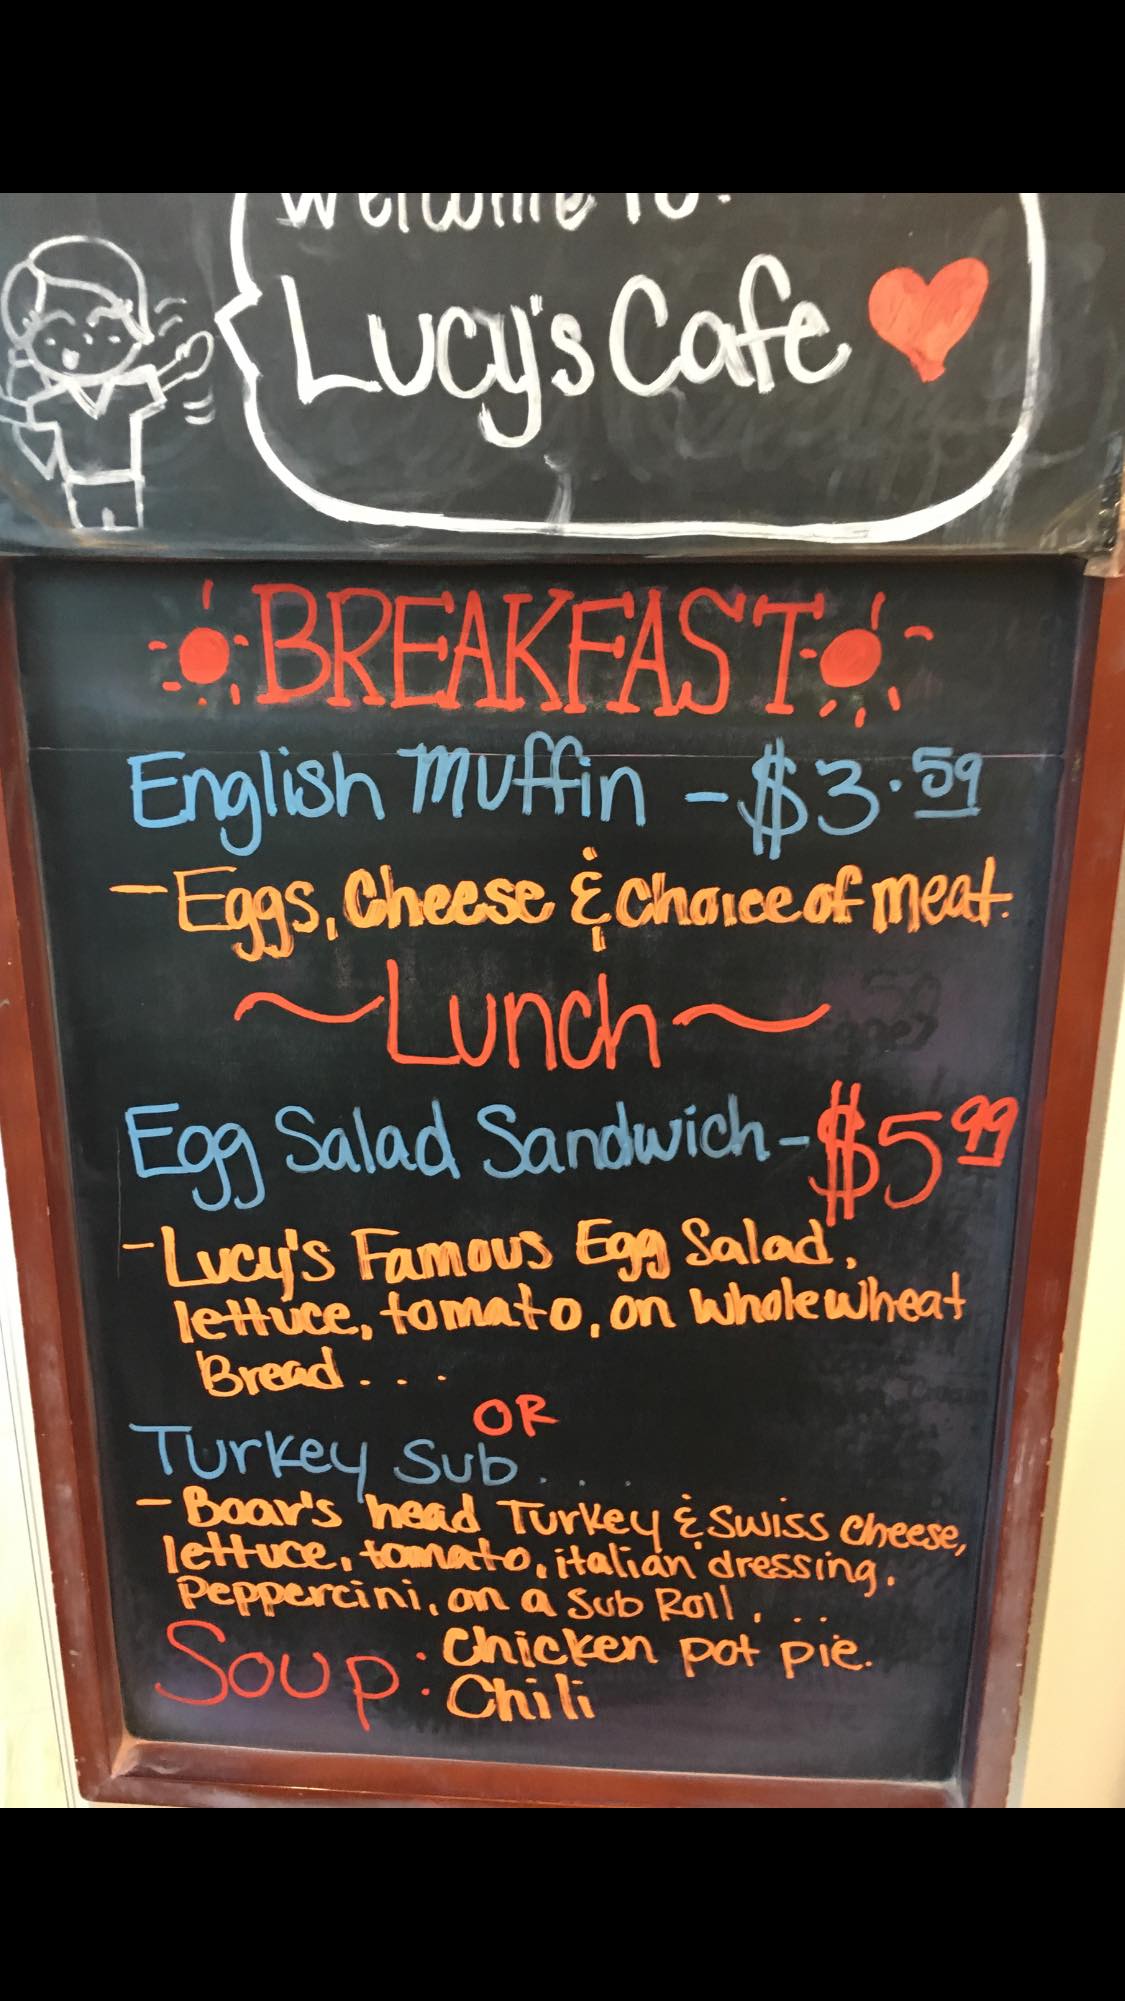 Welcome To:
Lucy's Cafe
BREAKFAST
English Muffin - $3.59
- Eggs, Cheese & Choice of meat.
~ Lunch ~
Egg Salad Sandwich - $5 99
- Lucy's Famous Egg Salad,
lettuce, tomato, on whole wheat
Bread . . .
OR
Turkey Sub . . .
- Boar's head Turkey & Swiss cheese,
lettuce, tomato, italian dressing.
Peppercini, on a Sub Roll . . .
Soup : Chicken pot pie.
Chili